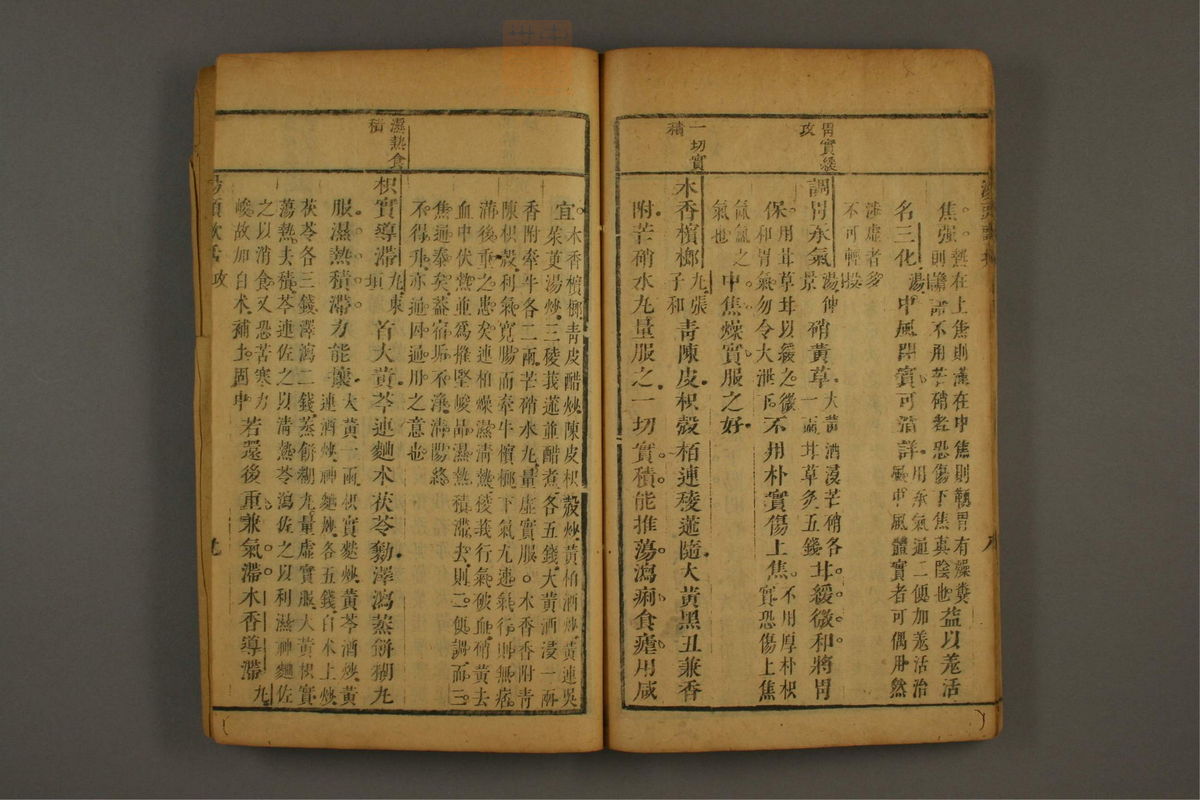 焦强。輕在上焦則滿在中焦則鞕胃有燥糞
則譫語不用芒硝者恐傷下焦眞陰也益以羌活
名三化。湯中風閉實可消詳。用承氣通二便加羌活治
風中風體實者可偶用然
涉虛者多
不可輕投
胃實緩
攻
調胃承氣湯仲
景硝黃草。大黃酒浸芒硝各
一兩甘草炙五錢甘緩微和將胃
保。用甘草甘以緩之微
和胃氣勿令大泄下不用朴實傷上焦。不用厚朴枳
實恐傷上焦
氤氳之
氣也中焦燥實服之好。
一切實
積
木香檳榔丸張
子和青陳皮枳殼栢連稜蓬隨大黃黑丑兼香
附芒硝水丸量服之一切實積能推蕩瀉痢食瘧用咸
宜。木香檳榔青皮醋炒陳皮枳殼炒黃柏酒炒黃連吳
茱萸湯炒三稜莪蓬並醋煮各五錢大黃酒浸一兩
香附牽牛各二兩芒硝水丸量虛實服。木香香附青
陳枳殼利氣寛腸而牽牛檳榔下氣尤速氣行則無痞
滿後重之患矣連柏燥濕清熱稜莪行氣破血硝黃去
血中伏熱並爲推堅峻品濕熱積滯去則二便調而三
焦通泰矣蓋宿垢不淨清陽終
不得升亦通因通用之意也
濕熱食
積
枳實導滯丸東
垣首大黃芩連麯术茯苓勷澤瀉蒸餅糊丸
服。濕熱積滯力能攘。大黃一兩枳實麩炒黃芩酒炒黃
連酒炒神麯炒各五錢白术土炒
茯苓各三錢澤瀉二錢蒸餅糊丸量虛實服大黃枳實
蕩熱去積芩連佐之以清熱苓瀉佐之以利濕神麯佐
之以消食又恐苦寒力
峻故加白术補土固中若還後重兼氣滯木香導滯丸
湯頭歌訣 攻 九